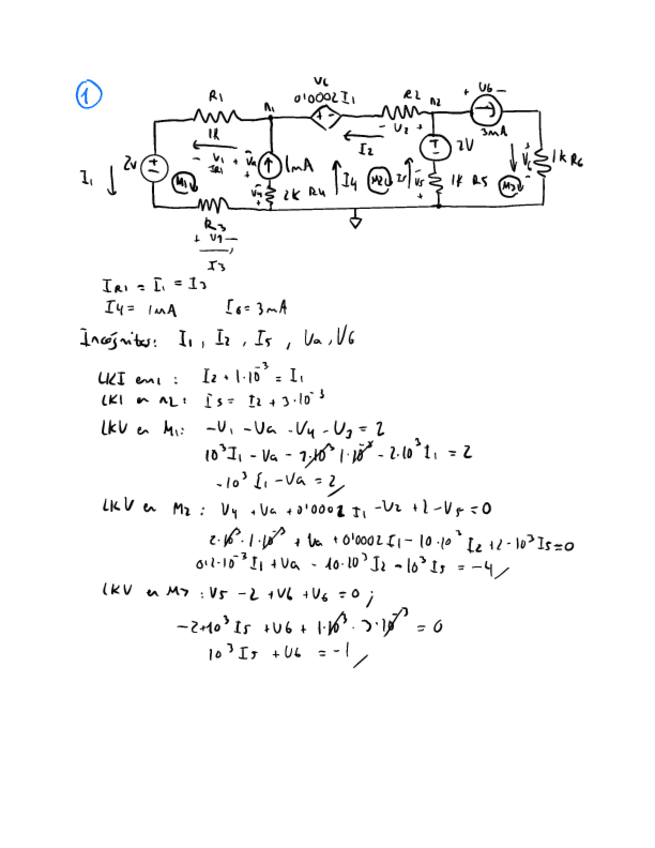 1
V6
R1 n1 0'0002 I1 R2 n2 + U6 -
- U2 +
1k 3mA
2V I2 2V
- V1 + Va 1mA
I1 M1 IR1 I4 M2 V5 M3 V6 1k R6
V4 2k R4 1k R5
R3
+ V3 -
I3
IR1 = I1 = I3
I4 = 1mA I6 = 3mA
Incógnitas: I1, I2, I5, Va, V6
LKI en n1: I2 + 1·10^-3 = I1
LKI en n2: I5 = I2 + 3·10^-3
LKV en M1: -V1 - Va - V4 - V3 = 2
10^3 I1 - Va - 2·10^3 1·10^-3 - 2·10^3 I1 = 2
-10^3 I1 - Va = 2
LKV en M2: V4 + Va + 0'0002 I1 - V2 + 2 - V5 = 0
2·10^3·1·10^-3 + Va + 0'0002 I1 - 10·10^3 I2 + 2 - 10^3 I5 = 0
0,2·10^-3 I1 + Va - 10·10^3 I2 - 10^3 I5 = -4
LKV en M3: V5 - 2 + V6 + V6 = 0;
-2+10^3 I5 + U6 + 1·10^3·3·10^-3 = 0
10^3 I5 + U6 = -1